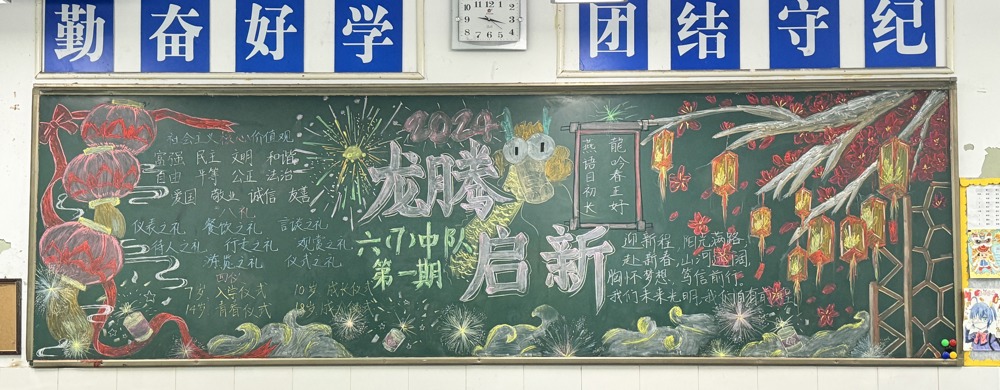 勤奋好学
团结守纪
社会主义核心价值观
富强 民主 文明 和谐
自由 平等 公正 法治
爱国 敬业 诚信 友善
八礼
仪表之礼 餐饮之礼 言谈之礼
待人之礼 行走之礼 观赏之礼
游览之礼 仪式之礼
四仪
7岁 入学仪式 10岁 成长仪式
14岁 青春仪式 18岁 成人仪式
2024
龙腾
启新
六(7)中队
第一期
龍吟春王好
燕语日初长
迎新程,阳光满路,
赴新春,山河远阔
胸怀梦想,笃信前行。
我们未来光明,我们自有前程